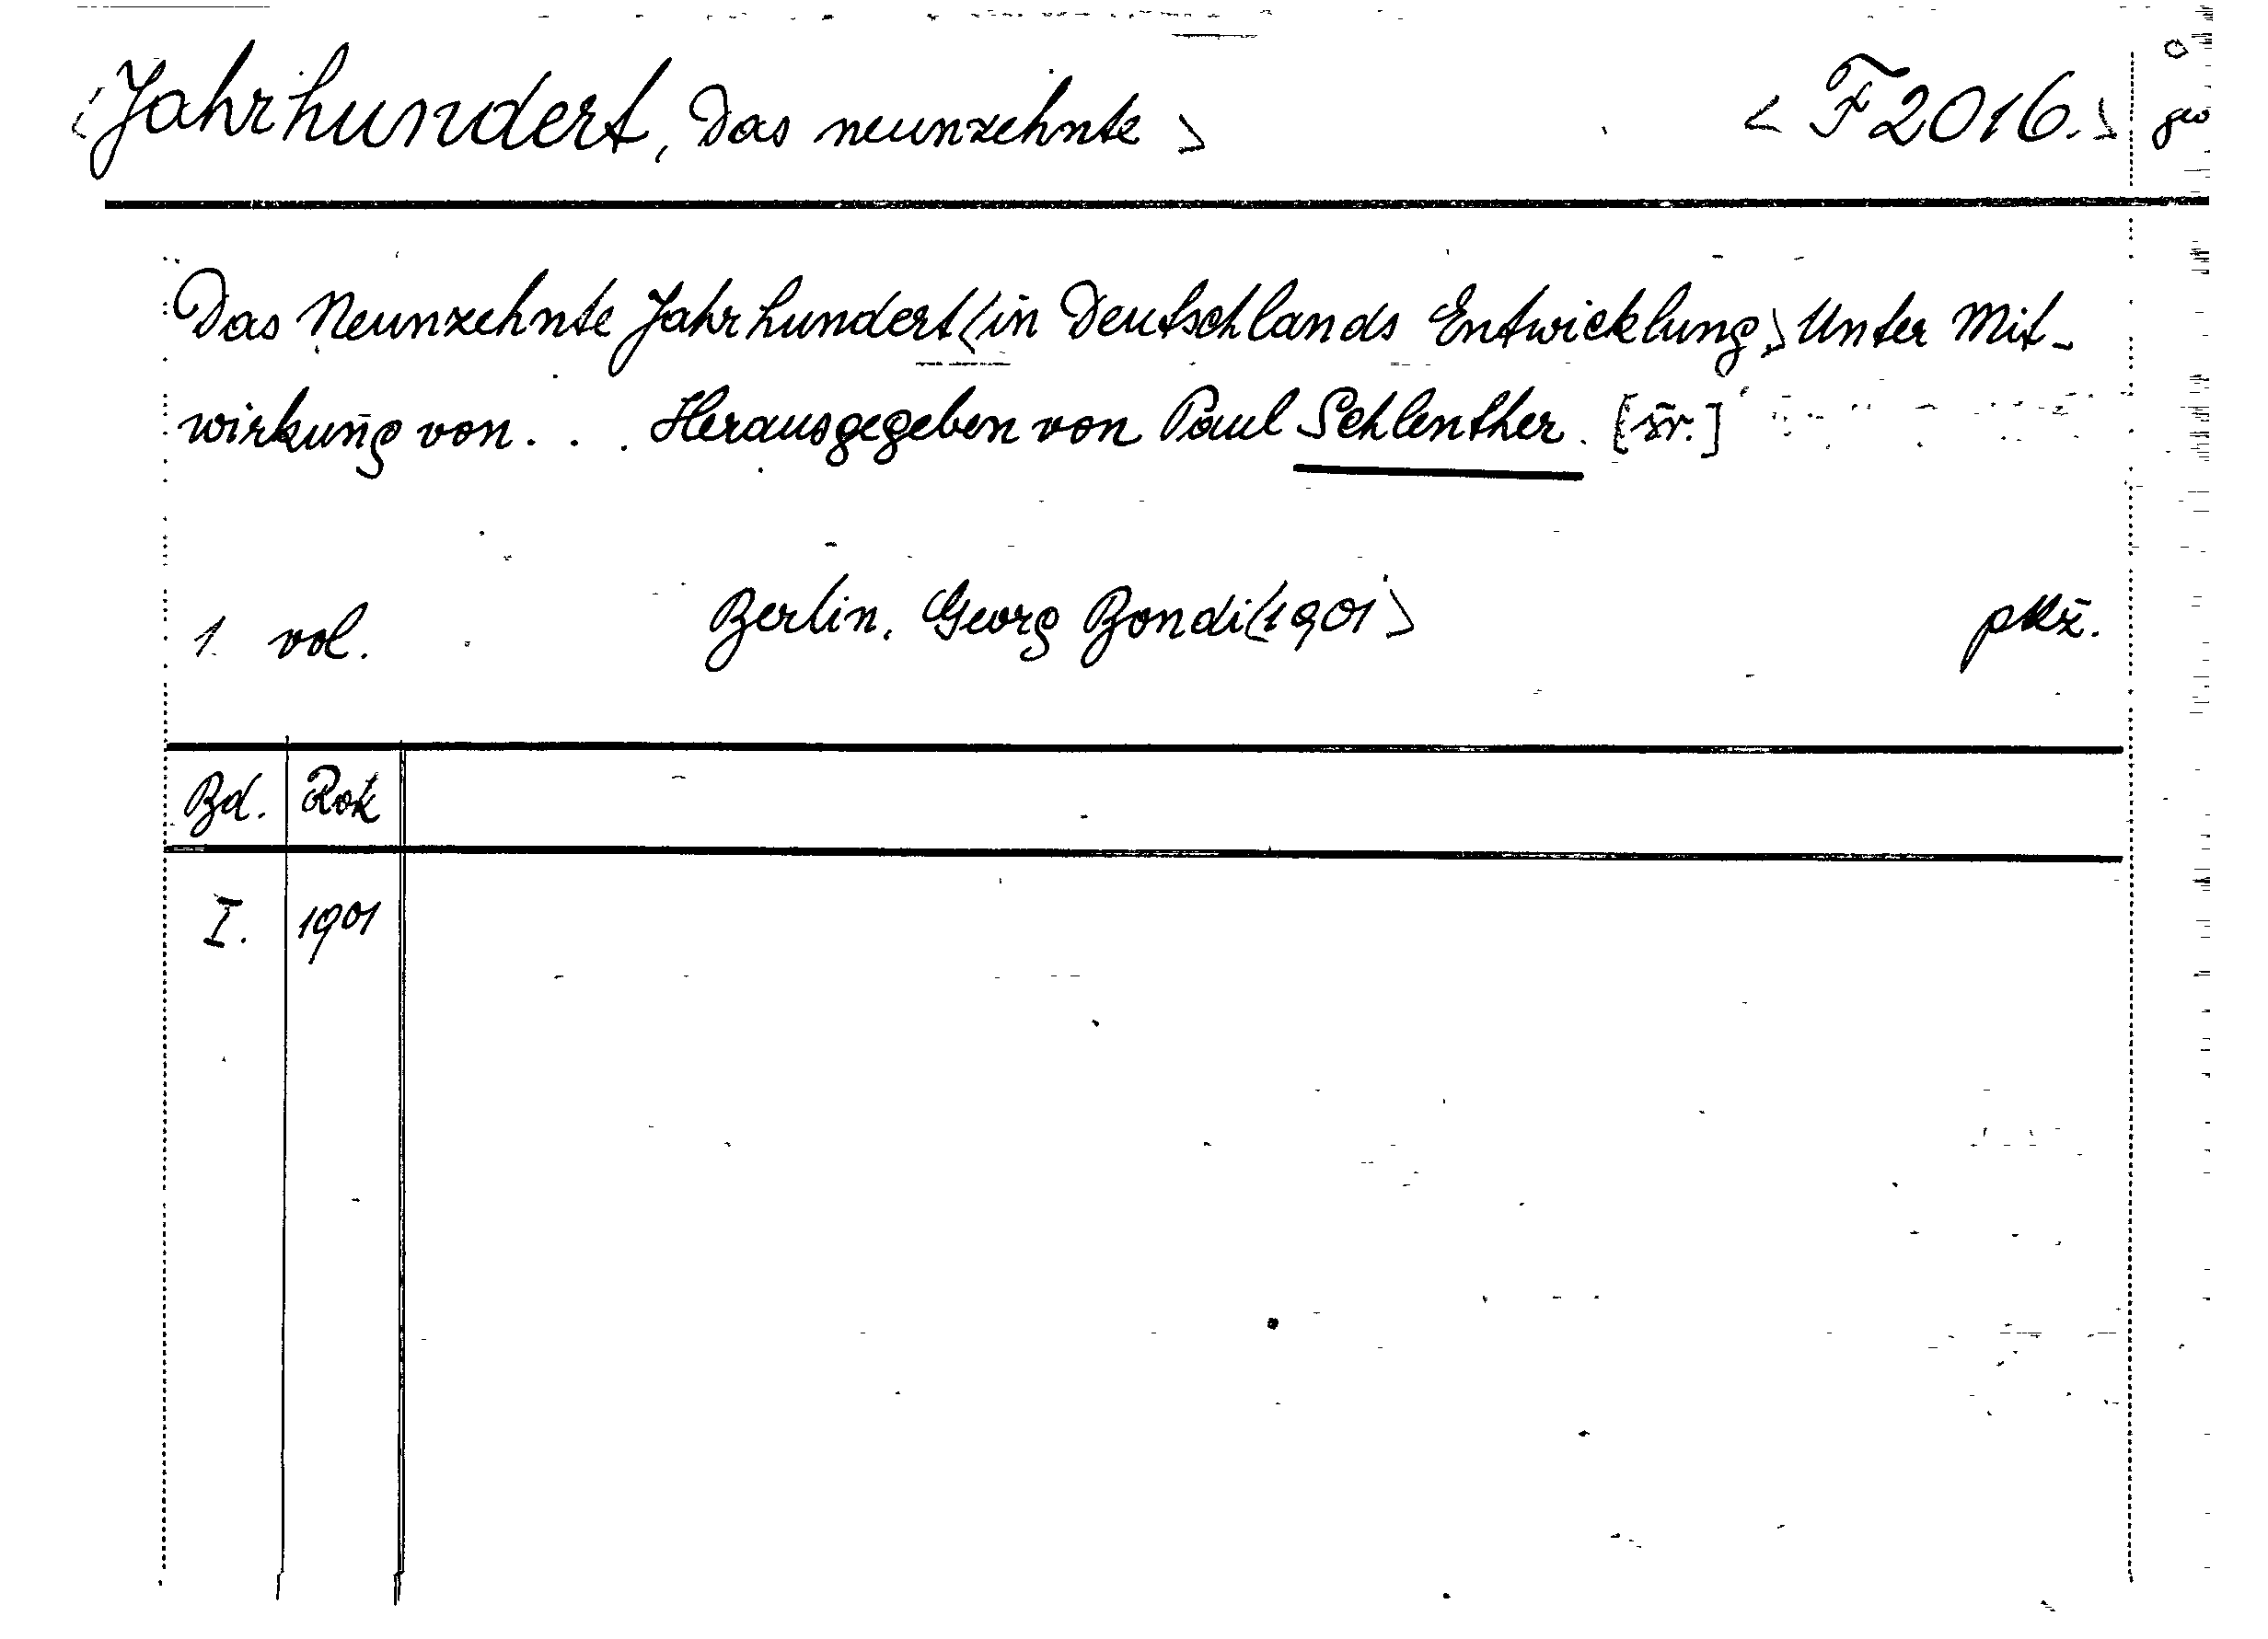 <Jahrhundert, Das neunzehnte> <F 2016.>
Das Neunzehnte Jahrhundert <in Deutschlands Entwicklung> Unter Mit-
wirkung von . . . Herausgegeben von Paul Schlenther. [šr.]
1. vol. Berlin, Georg Bondi <1901> pkž.
Bd. Rok
I. 1901